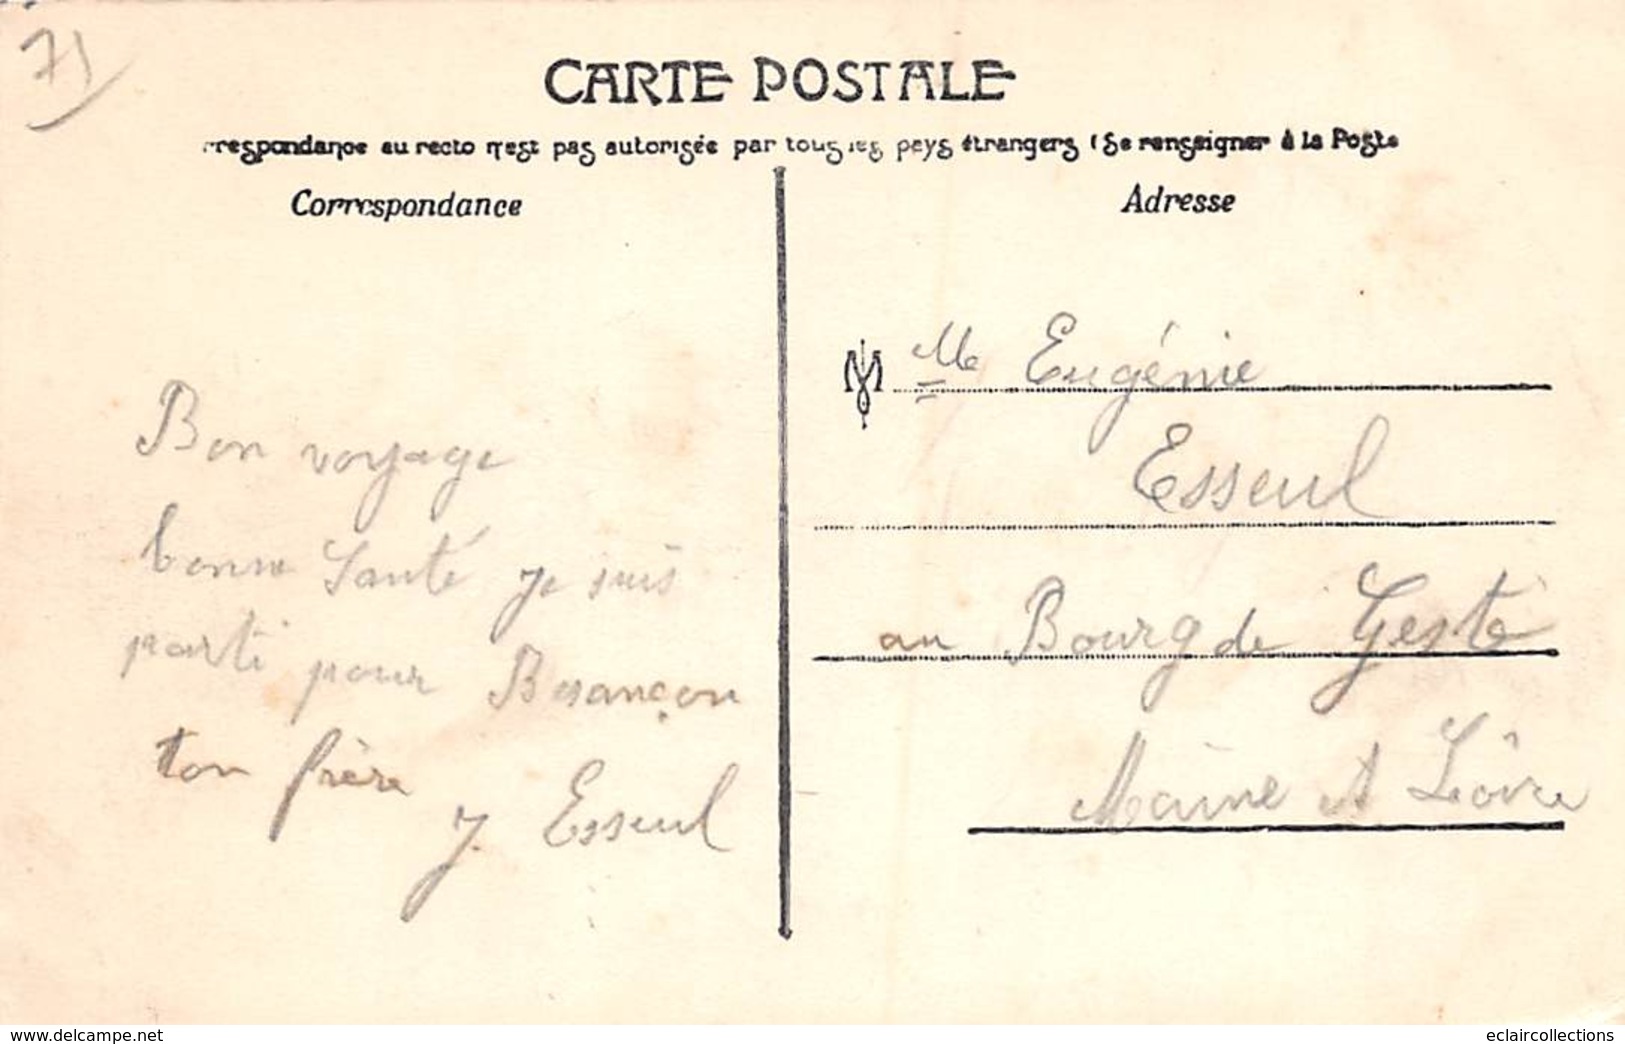 71
CARTE POSTALE
rrespondance au recto n'est pas autorisée par tous les pays étrangers (Se renseigner à la Poste
Correspondance
Adresse
Bon voyage
bonne Santé je suis
parti pour Besançon
ton frère
J. Esseul
Mlle Eugénie
Esseul
au Bourg de Gesté
Maine et Loire
www.delcampe.net
eclaircollections